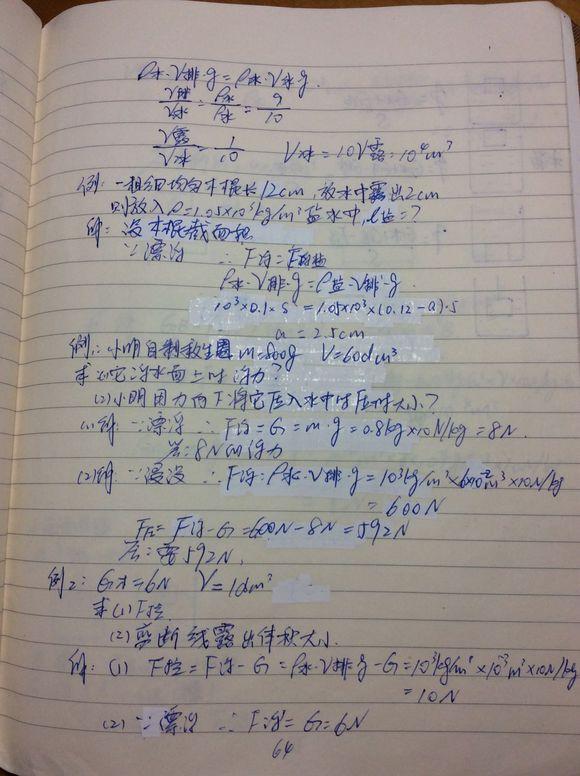 ρ水·V排·g = ρ冰·V冰·g
V排/V冰 = ρ冰/ρ水 = 9/10
V露/V冰 = 1/10 V冰 = 10V露 = 10⁴m³
例: 一粗细均匀木棍长12cm, 放水中露出2cm
则放入ρ=1.05×10³kg/m³盐水中, l盐=?
解: 设木棍截面积
∵漂浮 ∴F浮=F浮盐
ρ水·V排·g = ρ盐·V排·g
10³×0.1×s = 1.05×10³×(0.12-a)·s
a = 2.5cm
例1: 小明自制救生圈 m=800g V=60dm³
求(1)它浮水面上时浮力?
(2)小明用力向下将它压入水中时压力大小?
(1)解: ∵漂浮 ∴F浮=G=m·g=0.8kg×10N/kg=8N.
答: 8N的浮力
(2)解: ∵浸没 ∴F浮=ρ水·V排·g=10³kg/m³×6×10⁻²m³×10N/kg
=600N
F压=F浮-G=600N-8N=592N
答: 需592N.
例2: G木=6N V=1dm³
求(1)F拉
(2)剪断线露出体积大小.
解: (1) F拉=F浮-G=ρ水·V排·g-G=10³kg/m³×10⁻³m³×10N/kg
=10N
(2) ∵漂浮 ∴F浮=G=6N
64